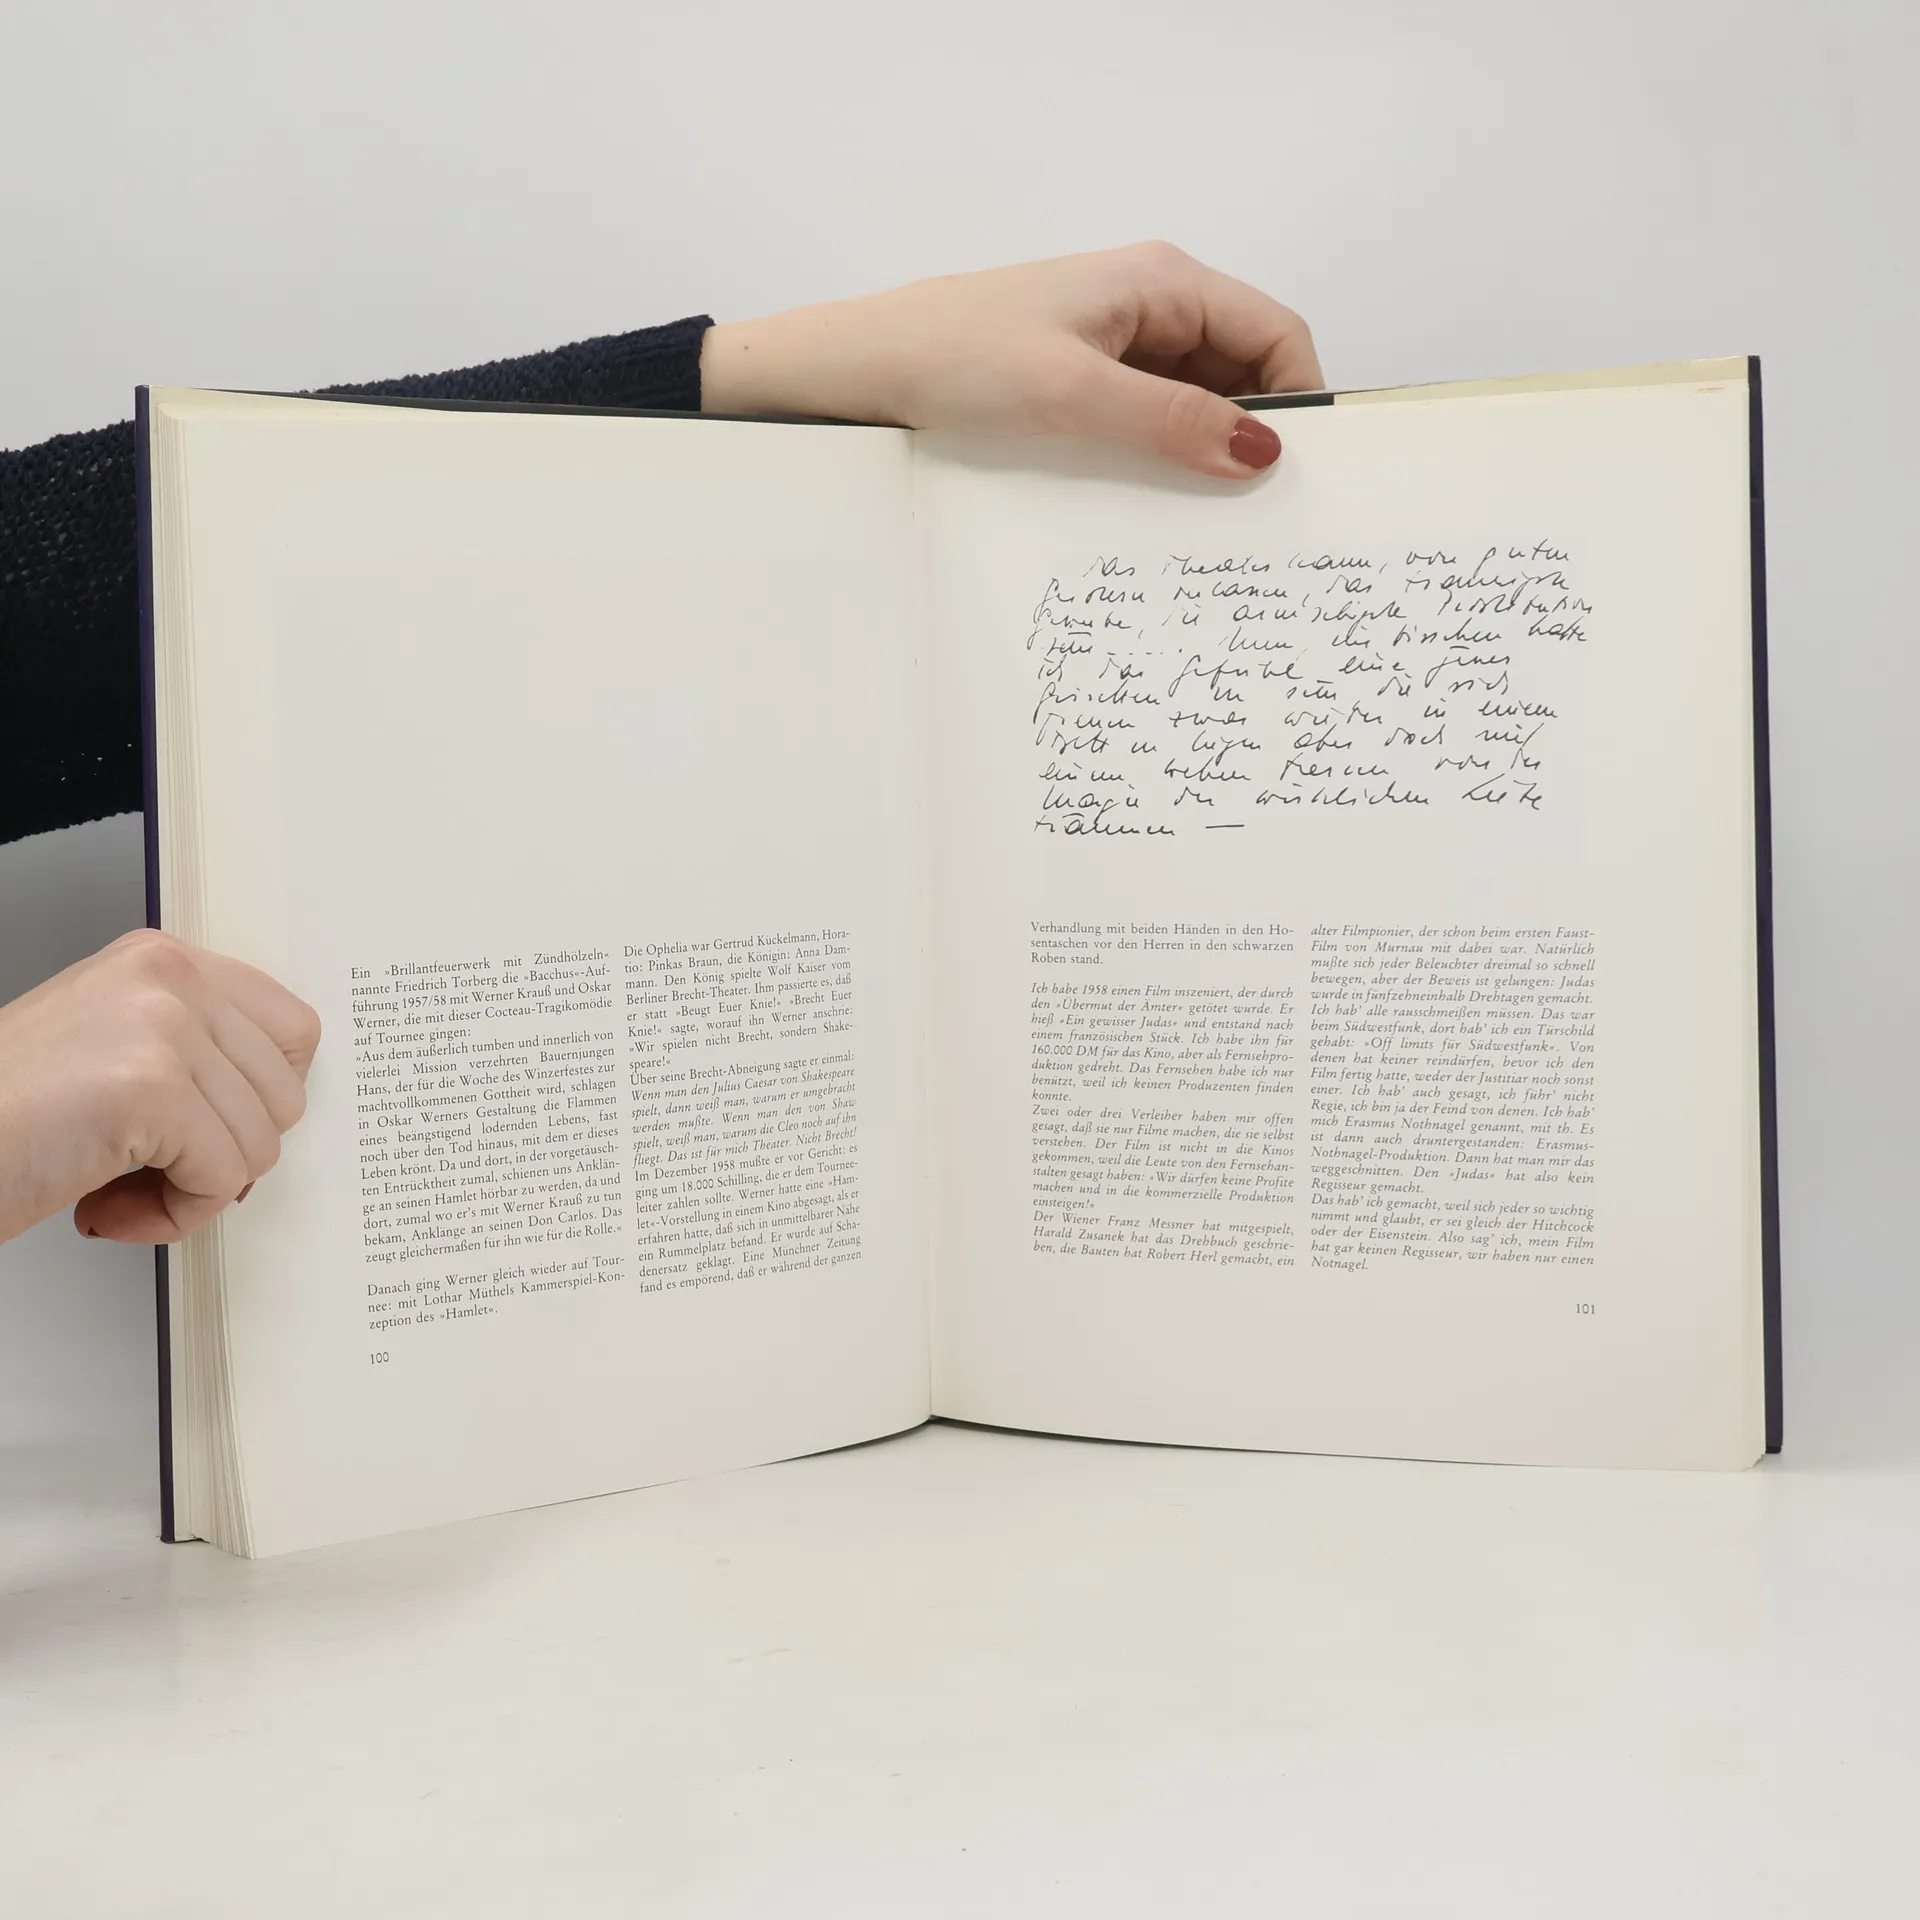 Ein »Brillantfeuerwerk mit Zündhölzeln«
nannte Friedrich Torberg die »Bacchus«-Auf-
führung 1957/58 mit Werner Krauß und Oskar
Werner, die mit dieser Cocteau-Tragikomödie
auf Tournee gingen:
»Aus dem äußerlich tumben und innerlich von
vielerlei Mission verzehrten Bauernjungen
Hans, der für die Woche des Winzerfestes zur
machtvollkommenen Gottheit wird, schlagen
in Oskar Werners Gestaltung die Flammen
eines beängstigend lodernden Lebens, fast
noch über den Tod hinaus, mit dem er dieses
Leben krönt. Da und dort, in der vorgetäusch-
ten Entrücktheit zumal, schienen uns Anklän-
ge an seinen Hamlet hörbar zu werden, da und
dort, zumal wo er's mit Werner Krauß zu tun
bekam, Anklänge an seinen Don Carlos. Das
zeugt gleichermaßen für ihn wie für die Rolle.«
Danach ging Werner gleich wieder auf Tour-
nee: mit Lothar Müthels Kammerspiel-Kon-
zeption des »Hamlet«.
Die Ophelia war Gertrud Kückelmann, Hora-
tio: Pinkas Braun, die Königin: Anna Dam-
mann. Den König spielte Wolf Kaiser vom
Berliner Brecht-Theater. Ihm passierte es, daß
er statt »Beugt Euer Knie!« »Brecht Euer
Knie!« sagte, worauf ihn Werner anschrie:
»Wir spielen nicht Brecht, sondern Shake-
speare!«
Über seine Brecht-Abneigung sagte er einmal:
Wenn man den Julius Caesar von Shakespeare
spielt, dann weiß man, warum er umgebracht
werden mußte. Wenn man den von Shaw
spielt, weiß man, warum die Cleo noch auf ihn
fliegt. Das ist für mich Theater. Nicht Brecht!
Im Dezember 1958 mußte er vor Gericht: es
ging um 18.000 Schilling, die er dem Tournee-
leiter zahlen sollte. Werner hatte eine »Ham-
let«-Vorstellung in einem Kino abgesagt, als er
erfahren hatte, daß sich in unmittelbarer Nähe
ein Rummelplatz befand. Er wurde auf Scha-
denersatz geklagt. Eine Münchner Zeitung
fand es empörend, daß er während der ganzen
100
das Theater kann, von guten
verlassen, das traurigste
Gewerbe, die armseligste Prostitution
sein ..... Nun, ein bisschen hatte
ich das Gefühl eine jener
zu sein die sich
zwar wieder in einem
Bett zu liegen aber doch mit
einem von der
Magie der wirklichen Liebe
träumen —
Verhandlung mit beiden Händen in den Ho-
sentaschen vor den Herren in den schwarzen
Roben stand.
Ich habe 1958 einen Film inszeniert, der durch
den »Übermut der Ämter« getötet wurde. Er
hieß »Ein gewisser Judas« und entstand nach
einem französischen Stück. Ich habe ihn für
160.000 DM für das Kino, aber als Fernsehpro-
duktion gedreht. Das Fernsehen habe ich nur
benützt, weil ich keinen Produzenten finden
konnte.
Zwei oder drei Verleiher haben mir offen
gesagt, daß sie nur Filme machen, die sie selbst
verstehen. Der Film ist nicht in die Kinos
gekommen, weil die Leute von den Fernsehan-
stalten gesagt haben: »Wir dürfen keine Profite
machen und in die kommerzielle Produktion
einsteigen!«
Der Wiener Franz Messner hat mitgespielt,
Harald Zusanek hat das Drehbuch geschrie-
ben, die Bauten hat Robert Herl gemacht, ein
alter Filmpionier, der schon beim ersten Faust-
Film von Murnau mit dabei war. Natürlich
mußte sich jeder Beleuchter dreimal so schnell
bewegen, aber der Beweis ist gelungen: Judas
wurde in fünfzehneinhalb Drehtagen gemacht.
Ich hab' alle rausschmeißen müssen. Das war
beim Südwestfunk, dort hab' ich ein Türschild
gehabt: »Off limits für Südwestfunk«. Von
denen hat keiner reindürfen, bevor ich den
Film fertig hatte, weder der Justitiar noch sonst
einer. Ich hab' auch gesagt, ich führ' nicht
Regie, ich bin ja der Feind von denen. Ich hab'
mich Erasmus Nothnagel genannt, mit th. Es
ist dann auch druntergestanden: Erasmus-
Nothnagel-Produktion. Dann hat man mir das
weggeschnitten. Den »Judas« hat also kein
Regisseur gemacht.
Das hab' ich gemacht, weil sich jeder so wichtig
nimmt und glaubt, er sei gleich der Hitchcock
oder der Eisenstein. Also sag' ich, mein Film
hat gar keinen Regisseur, wir haben nur einen
Notnagel.
101